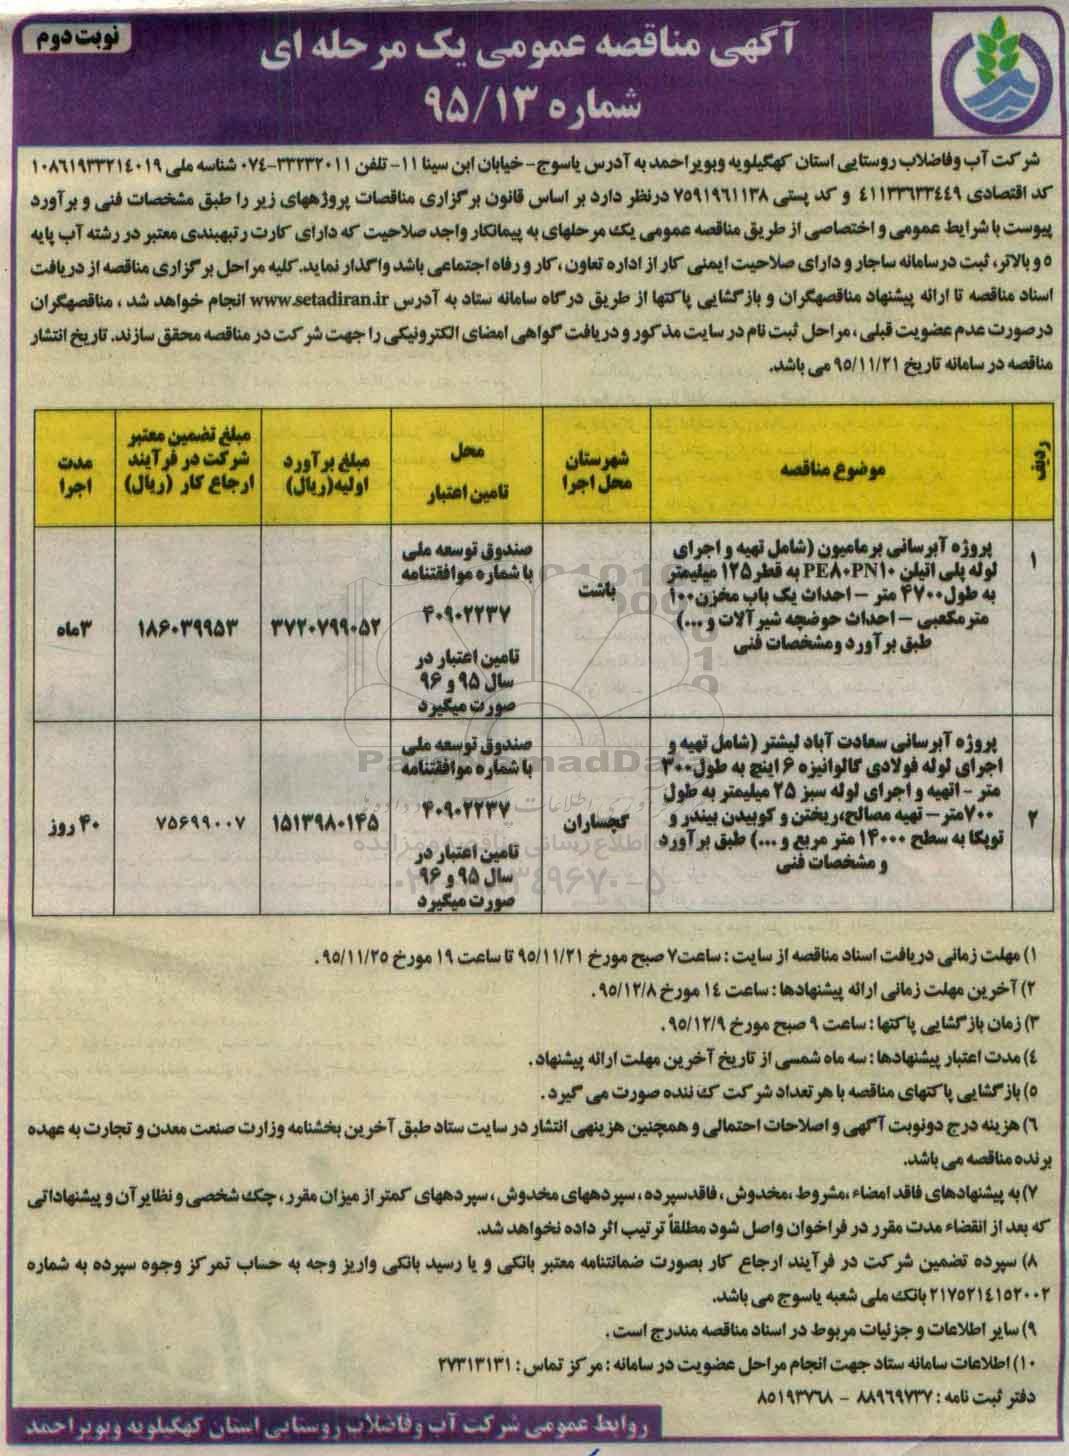 نوبت دوم
آگهی مناقصه عمومی یک مرحله ای
شماره ۹۵/۱۳
شرکت آب وفاضلاب روستایی استان کهگیلویه وبویراحمد به آدرس یاسوج- خیابان ابن سینا ۱۱- تلفن ۳۳۲۳۲۰۱۱-۰۷۴ شناسه ملی ۱۰۸۶۱۹۳۳۲۱۴۰۱۹
کد اقتصادی ۴۱۱۳۳۶۳۳۴۴۹ و کد پستی ۷۵۹۱۹۶۱۱۳۸ درنظر دارد بر اساس قانون برگزاری مناقصات پروژههای زیر را طبق مشخصات فنی و برآورد
پیوست با شرایط عمومی و اختصاصی از طریق مناقصه عمومی یک مرحلهای به پیمانکار واجد صلاحیت که دارای کارت رتبهبندی معتبر در رشته آب پایه
۵ و بالاتر، ثبت درسامانه ساجار و دارای صلاحیت ایمنی کار از اداره تعاون ،کار و رفاه اجتماعی باشد واگذار نماید. کلیه مراحل برگزاری مناقصه از دریافت
اسناد مناقصه تا ارائه پیشنهاد مناقصهگران و بازگشایی پاکتها از طریق درگاه سامانه ستاد به آدرس www.setadiran.ir انجام خواهد شد ، مناقصهگران
درصورت عدم عضویت قبلی ، مراحل ثبت نام در سایت مذکور و دریافت گواهی امضای الکترونیکی را جهت شرکت در مناقصه محقق سازند. تاریخ انتشار
مناقصه در سامانه تاریخ ۹۵/۱۱/۲۱ می باشد.
ردیف
موضوع مناقصه
شهرستان
محل اجرا
محل
تامین اعتبار
مبلغ برآورد
اولیه(ریال)
مبلغ تضمین معتبر
شرکت در فرآیند
ارجاع کار (ریال)
مدت
اجرا
۱
پروژه آبرسانی برمامیون (شامل تهیه و اجرای
لوله پلی اتیلن PE۸۰PN۱۰ به قطر ۱۲۵ میلیمتر
به طول ۴۷۰۰ متر – احداث یک باب مخزن ۱۰۰
مترمکعبی – احداث حوضچه شیرآلات و ...)
طبق برآورد ومشخصات فنی
باشت
صندوق توسعه ملی
با شماره موافقتنامه
۴۰۹۰۲۲۳۷
تامین اعتبار در
سال ۹۵ و ۹۶
صورت میگیرد
۳۷۲۰۷۹۹۰۵۲
۱۸۶۰۳۹۹۵۳
۳ماه
۲
پروژه آبرسانی سعادت آباد لیشتر (شامل تهیه و
اجرای لوله فولادی گالوانیزه ۶ اینچ به طول ۳۰۰
متر - اتهیه و اجرای لوله سبز ۲۵ میلیمتر به طول
۷۰۰متر– تهیه مصالح،ریختن و کوبیدن بیندر و
توپکا به سطح ۱۴۰۰۰ متر مربع و ...) طبق برآورد
و مشخصات فنی
گچساران
صندوق توسعه ملی
با شماره موافقتنامه
۴۰۹۰۲۲۳۷
تامین اعتبار در
سال ۹۵ و ۹۶
صورت میگیرد
۱۵۱۳۹۸۰۱۴۵
۷۵۶۹۹۰۰۷
۴۰ روز
۱) مهلت زمانی دریافت اسناد مناقصه از سایت : ساعت۷ صبح مورخ ۹۵/۱۱/۲۱ تا ساعت ۱۹ مورخ ۹۵/۱۱/۲۵ .
۲) آخرین مهلت زمانی ارائه پیشنهادها : ساعت ۱۴ مورخ ۹۵/۱۲/۸ .
۳) زمان بازگشایی پاکتها : ساعت ۹ صبح مورخ ۹۵/۱۲/۹ .
۴) مدت اعتبار پیشنهادها : سه ماه شمسی از تاریخ آخرین مهلت ارائه پیشنهاد .
۵) بازگشایی پاکتهای مناقصه با هر تعداد شرکت ک ننده صورت می گیرد .
۶) هزینه درج دونوبت آگهی و اصلاحات احتمالی و همچنین هزینهی انتشار در سایت ستاد طبق آخرین بخشنامه وزارت صنعت معدن و تجارت به عهده
برنده مناقصه می باشد.
۷) به پیشنهادهای فاقد امضاء ،مشروط ،مخدوش ، فاقدسپرده ، سپردههای مخدوش ، سپردههای کمتر از میزان مقرر ، چک شخصی و نظایر آن و پیشنهاداتی
که بعد از انقضاء مدت مقرر در فراخوان واصل شود مطلقاً ترتیب اثر داده نخواهد شد.
۸) سپرده تضمین شرکت در فرآیند ارجاع کار بصورت ضمانتنامه معتبر بانکی و یا رسید بانکی واریز وجه به حساب تمرکز وجوه سپرده به شماره
۲۱۷۵۲۱۴۱۵۲۰۰۲ بانک ملی شعبه یاسوج می باشد.
۹) سایر اطلاعات و جزئیات مربوط در اسناد مناقصه مندرج است .
۱۰) اطلاعات سامانه ستاد جهت انجام مراحل عضویت در سامانه : مرکز تماس : ۲۷۳۱۳۱۳۱
دفتر ثبت نامه : ۸۸۹۶۹۷۳۷ – ۸۵۱۹۳۷۶۸
روابط عمومی شرکت آب وفاضلاب روستایی استان کهگیلویه وبویراحمد